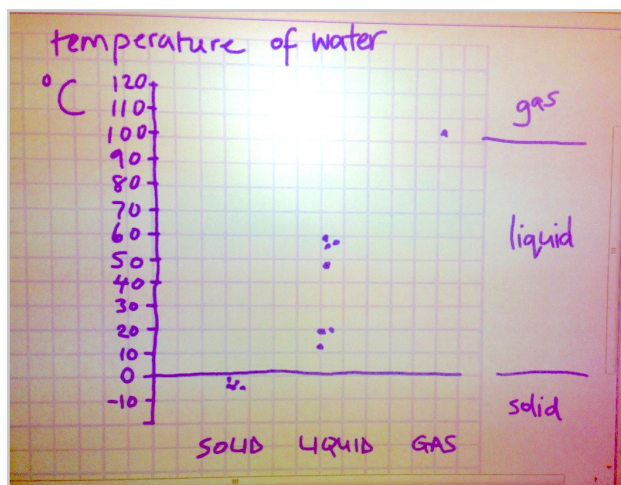 temperature of water
°C
120
110
100
90
80
70
60
50
40
30
20
10
0
-10
SOLID LIQUID GAS
gas
liquid
solid